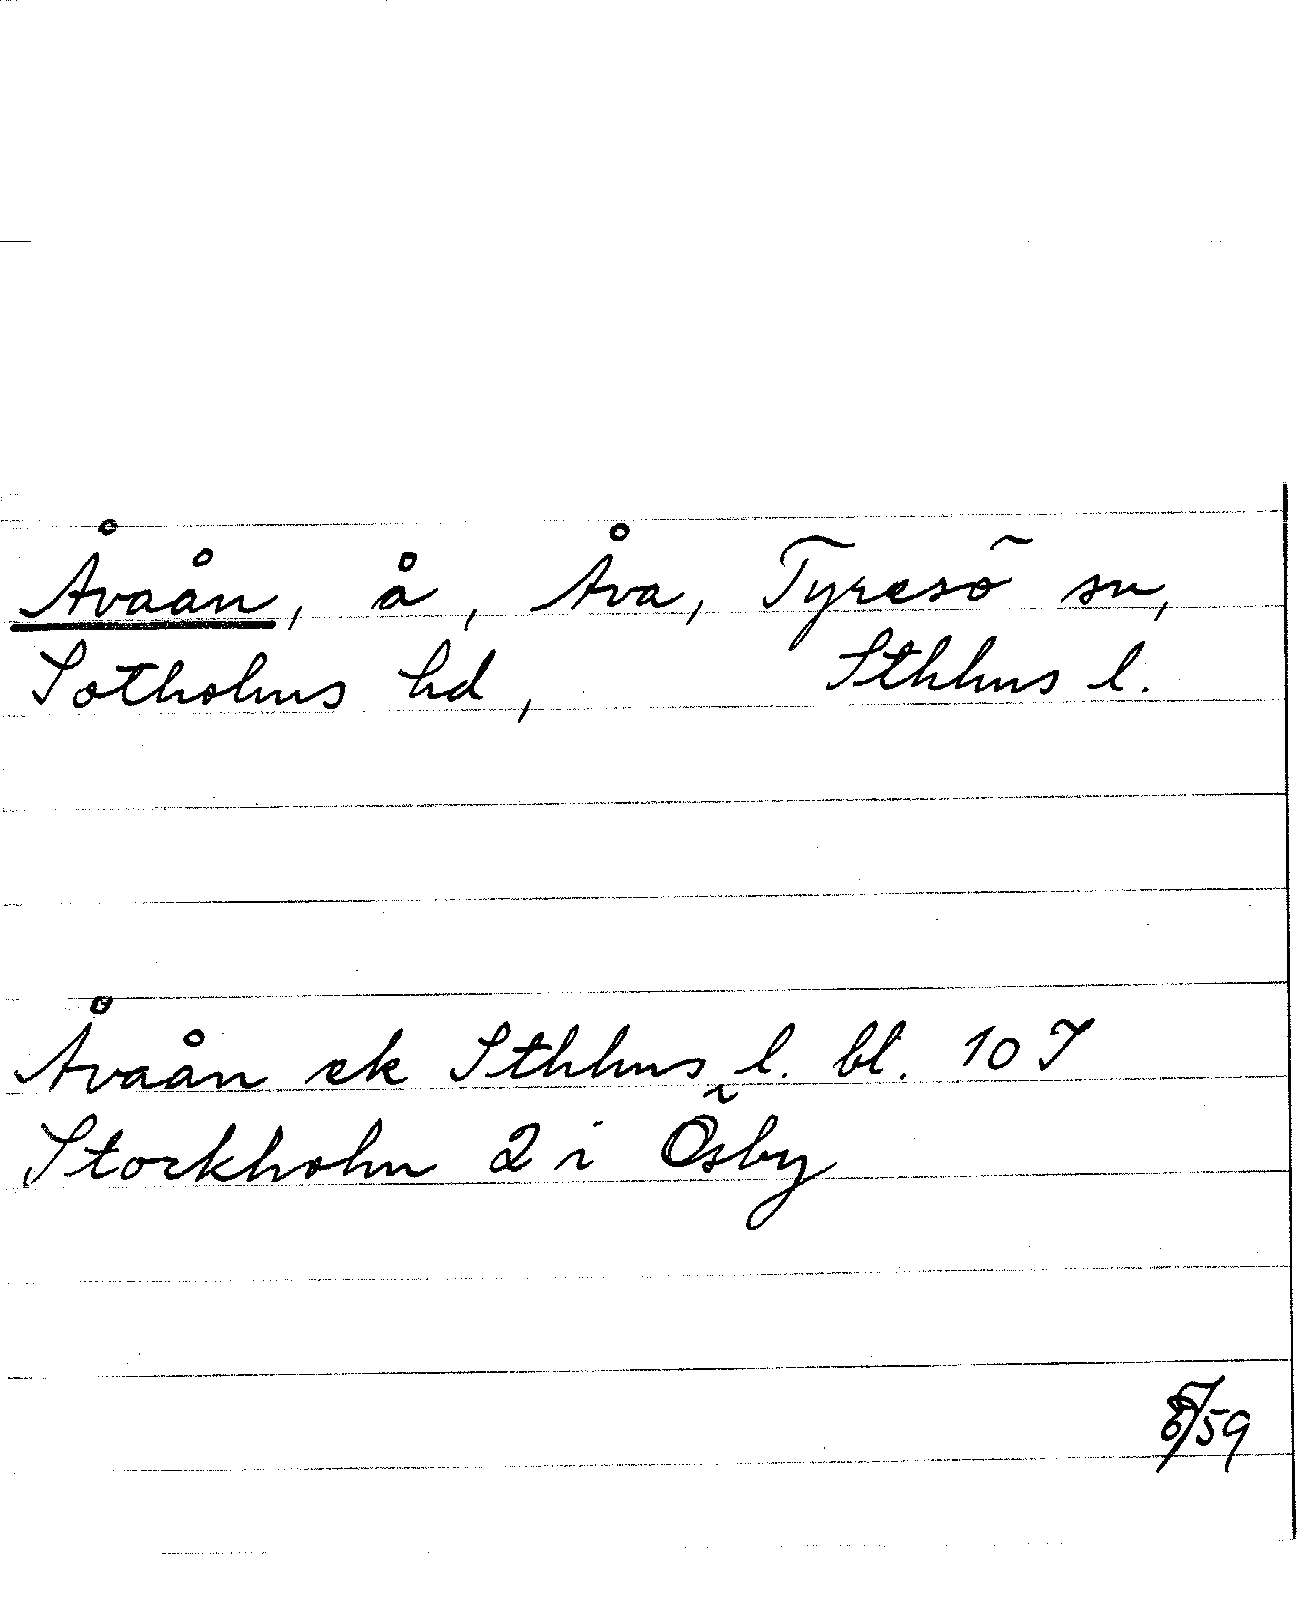 Åvaån, å, Åva, Tyresö sn,
Sotholms hd, Sthlms l.
Åvaån ek Sthlms l. bl. 10 J
Stockholm 2 i Ösby
/59